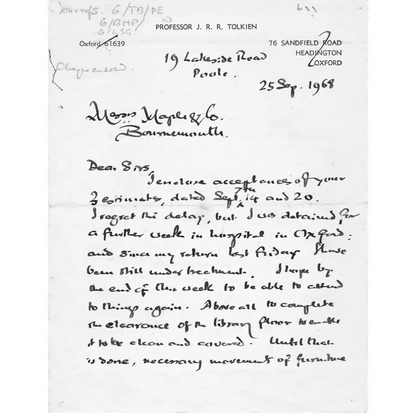 PROFESSOR J. R. R. TOLKIEN
Oxford 61639
76 SANDFIELD ROAD
HEADINGTON
OXFORD
19 Lakeside Road
Poole.
25 Sep. 1968
Messrs Maple & Co.
Bournemouth.
Dear Sirs,
I enclose acceptances of your
3 estimates, dated Sept. 7th, 14 and 20.
I regret the delay, but I was detained for
a further week in hospital in Oxford:
and since my return last Friday I have
been still under treatment. I hope by
the end of this week to be able to attend
to things again. Above all to complete
the clearance of the library floor to enable
it to be clean and covered. Until that
is done, necessary movements of furniture